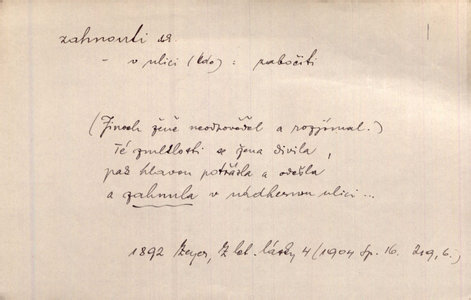 zahnouti se.
- v ulici (kdo): zabočiti
(Jinoch ženě neodpověděl a rozjímal.)
Té zmlklosti se žena divila,
pak hlavou potřásla a odešla
a zahnula v nádhernou ulici...
1892 Zeyer, Z let. lásky 4 (1904 Sp. 16. 219, 6.)